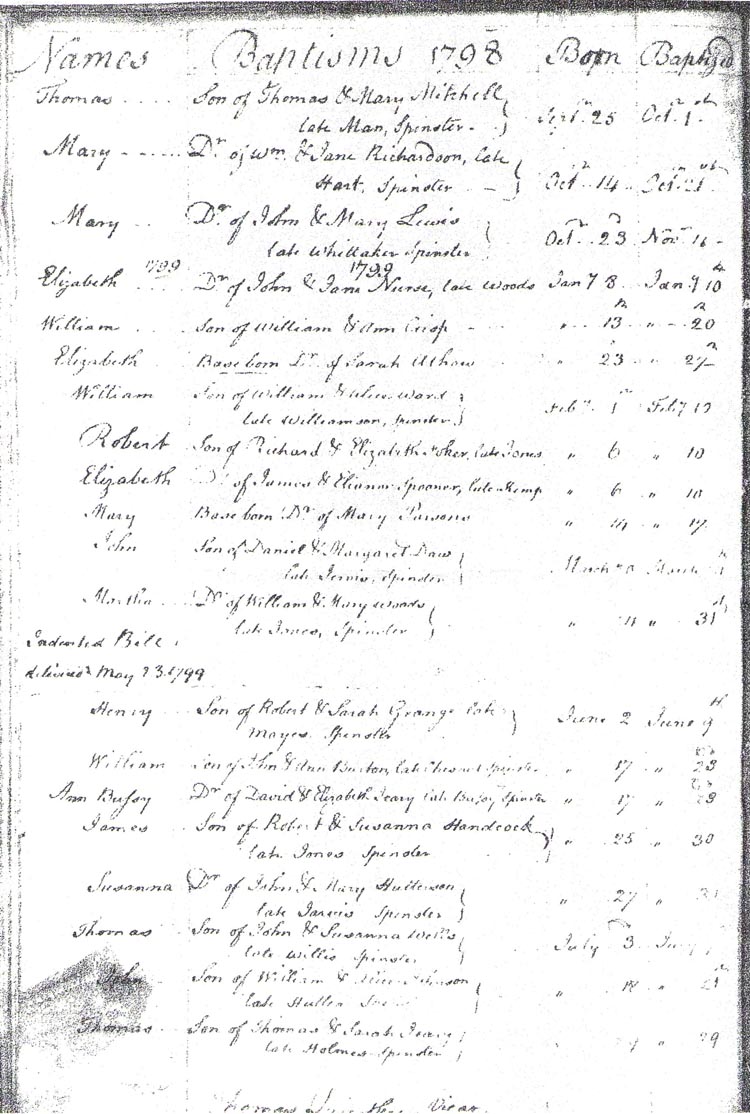 Names Baptisms 1798 Born Baptized
Thomas .... Son of Thomas & Mary Mitchell
late Man, Spinster. Sept. 25 Oct. 1st
Mary - ..... Dr. of Wm. & Jane Richardson, late
Hart, Spinster Oct. 14 Oct. 21st
Mary ... Dr. of John & Mary Lewis
late Whittaker Spinster Octr. 23 Novr. 16
1799 1799
Elizabeth .... Dr. of John & Jane Nurse, late Woods Jany 8 Jany 10
William .... Son of William & Ann Crisp " 13 " 20
Elizabeth Base born Dr. of Sarah " 23 " 27
William Son of William & Alice Ward
late Williamson, Spinster Feby. 1
Robert Son of Richard & Elizabeth late Jones " 6 " 10
Elizabeth Dr. of James & Elianor Spooner, late Kemp " 6 " 10
Mary Base born Dr. of Mary Parsons " 14 " 17
John Son of Daniel & Margaret Daw
late Jervis, Spinster March March
Martha Dr. of William & Mary Woods
late Jones, Spinster " " 31st
Indented Bill
delivered May 23. 1799
Henry Son of Robert & Sarah Grange late
Mayes Spinster June 2 June 9th
William Son of John & Ann Burton, late Spinster " 17 " 23
Ann Bussy Dr. of David & Elizabeth Feary late Bussy Spinster " 17 " 23
James Son of Robert & Susanna Handcock
late Jones Spinster " 25 " 30
Susanna Dr. of John & Mary
late Jarvis Spinster " 27
Thomas Son of John & Susanna Wells
late Willis Spinster July 3
John Son of William &
late
Thomas Son of Thomas & Sarah
late Holmes Spinster " 29
Thomas Vicar